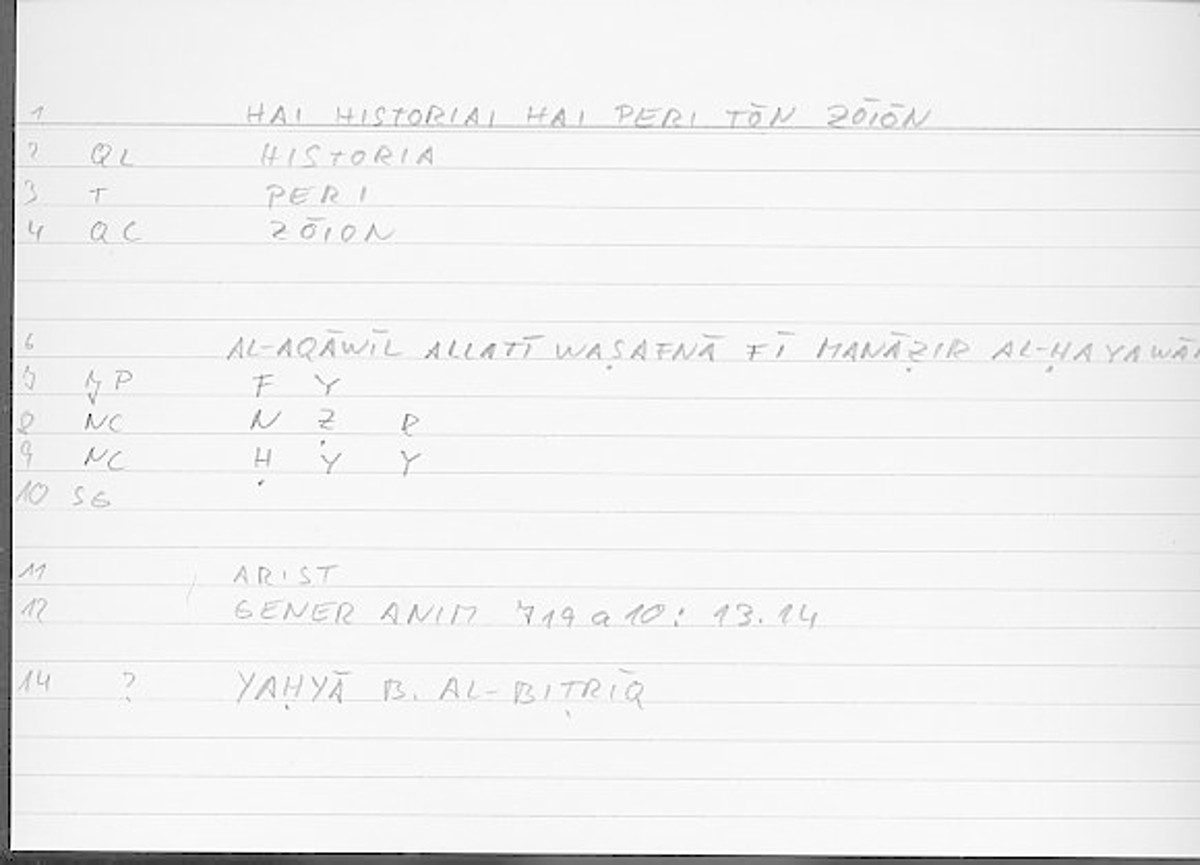 1 HAI HISTORIAI HAI PERI TŌN ZŌIŌN
2 QL HISTORIA
3 T PERI
4 QC ZŌION
6 AL-AQĀWĪL ALLATĪ WAṢAFNĀ FĪ MANĀẒIR AL-ḤAYAWĀN
7 JP F Y
8 NC N Ẓ R
9 NC Ḥ Y Y
10 SG
11 ARIST
12 GENER ANIM 719 a 10: 13.14
14 ? YAḤYĀ B. AL-BIṬRĪQ